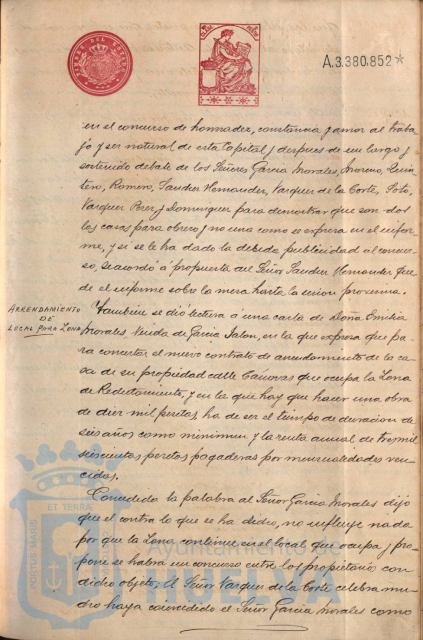 A.3.380.852*
en el concurso de honradez, constancia y amor al traba-
jo y ser natural de esta Capital, y despues de un largo y
sostenido debate de los Señores Garcia Morales, Moreno, Quin-
tero, Romero, Sanchez Hernandez, Vazquez de la Corte, Soto,
Vazquez Perez y Dominguez para demostrar que son dos
las casas para obrero y no una como se expresa en el infor-
me, y si se le ha dado la debida publicidad al concur-
so, se acordó á propuesta del Señor Sanchez Hernandez que-
de el informe sobre la mesa hasta la sesion proxima.
ARRENDAMIENTO
DE
LOCAL PARA ZONA
Tambien se dió lectura á una carta de Doña Emilia
Morales Viuda de Garcia Jalon, en la que expresa que pa-
ra concertar el nuevo contrato de arrendamiento de la ca-
sa de su propiedad calle Canovas que ocupa la Zona
de Reclutamiento, y en la que hay que hacer una obra
de diez mil pesetas, ha de ser el tiempo de duracion de
seis años como minimun y la renta anual de tres mil
seiscientas pesetas pagaderas por mensualidades ven-
cidas.
Concedida la palabra al Señor Garcia Morales dijo
que el contra lo que se ha dicho, no influye nada
por que la Zona continue en el local que ocupa y pro-
pone se habra un concurso entre los propietarios con
dicho objeto. El Señor Vazquez de la Corte celebra mu-
cho haya coincidido el Señor Garcia Morales como
PORTUS MARIS
ET TERRAE
Ayuntamiento de
HUELVA